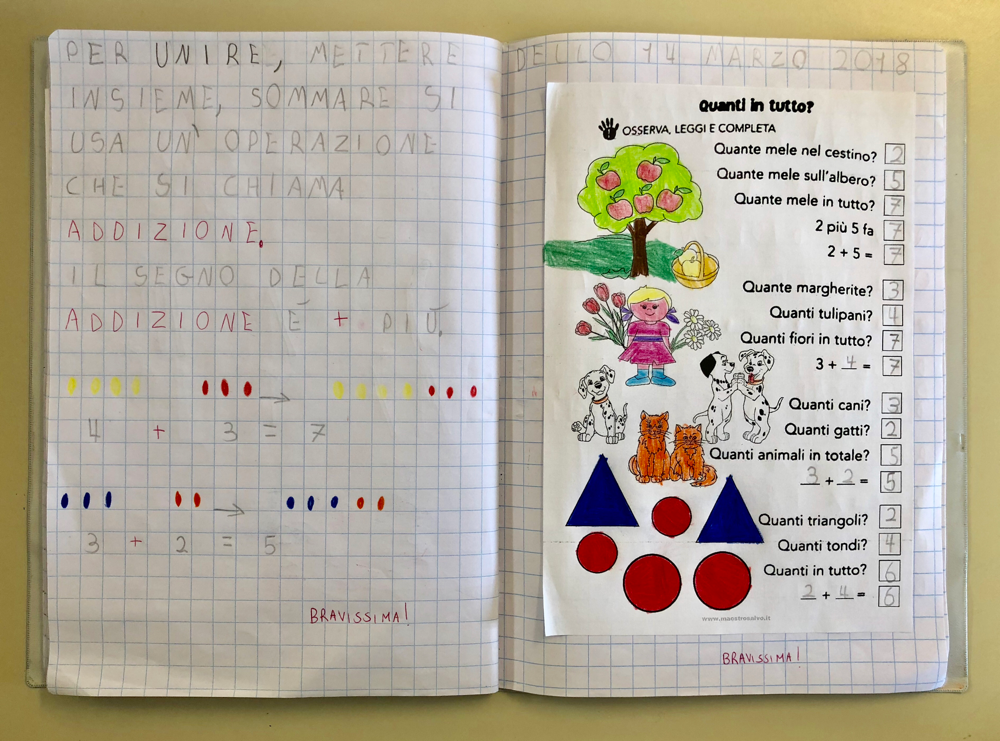 PER UNIRE, METTERE
INSIEME, SOMMARE SI
USA UN' OPERAZIONE
CHE SI CHIAMA
ADDIZIONE.
IL SEGNO DELLA
ADDIZIONE È + PIÙ.
4 + 3 = 7
3 + 2 = 5
BRAVISSIMA!
DELLO 14 MARZO 2018
Quanti in tutto?
OSSERVA, LEGGI E COMPLETA
Quante mele nel cestino? 2
Quante mele sull'albero? 5
Quante mele in tutto? 7
2 più 5 fa 7
2 + 5 = 7
Quante margherite? 3
Quanti tulipani? 4
Quanti fiori in tutto? 7
3 + 4 = 7
Quanti cani? 3
Quanti gatti? 2
Quanti animali in totale? 5
3 + 2 = 5
Quanti triangoli? 2
Quanti tondi? 4
Quanti in tutto? 6
2 + 4 = 6
www.maestrasalva.it
BRAVISSIMA!